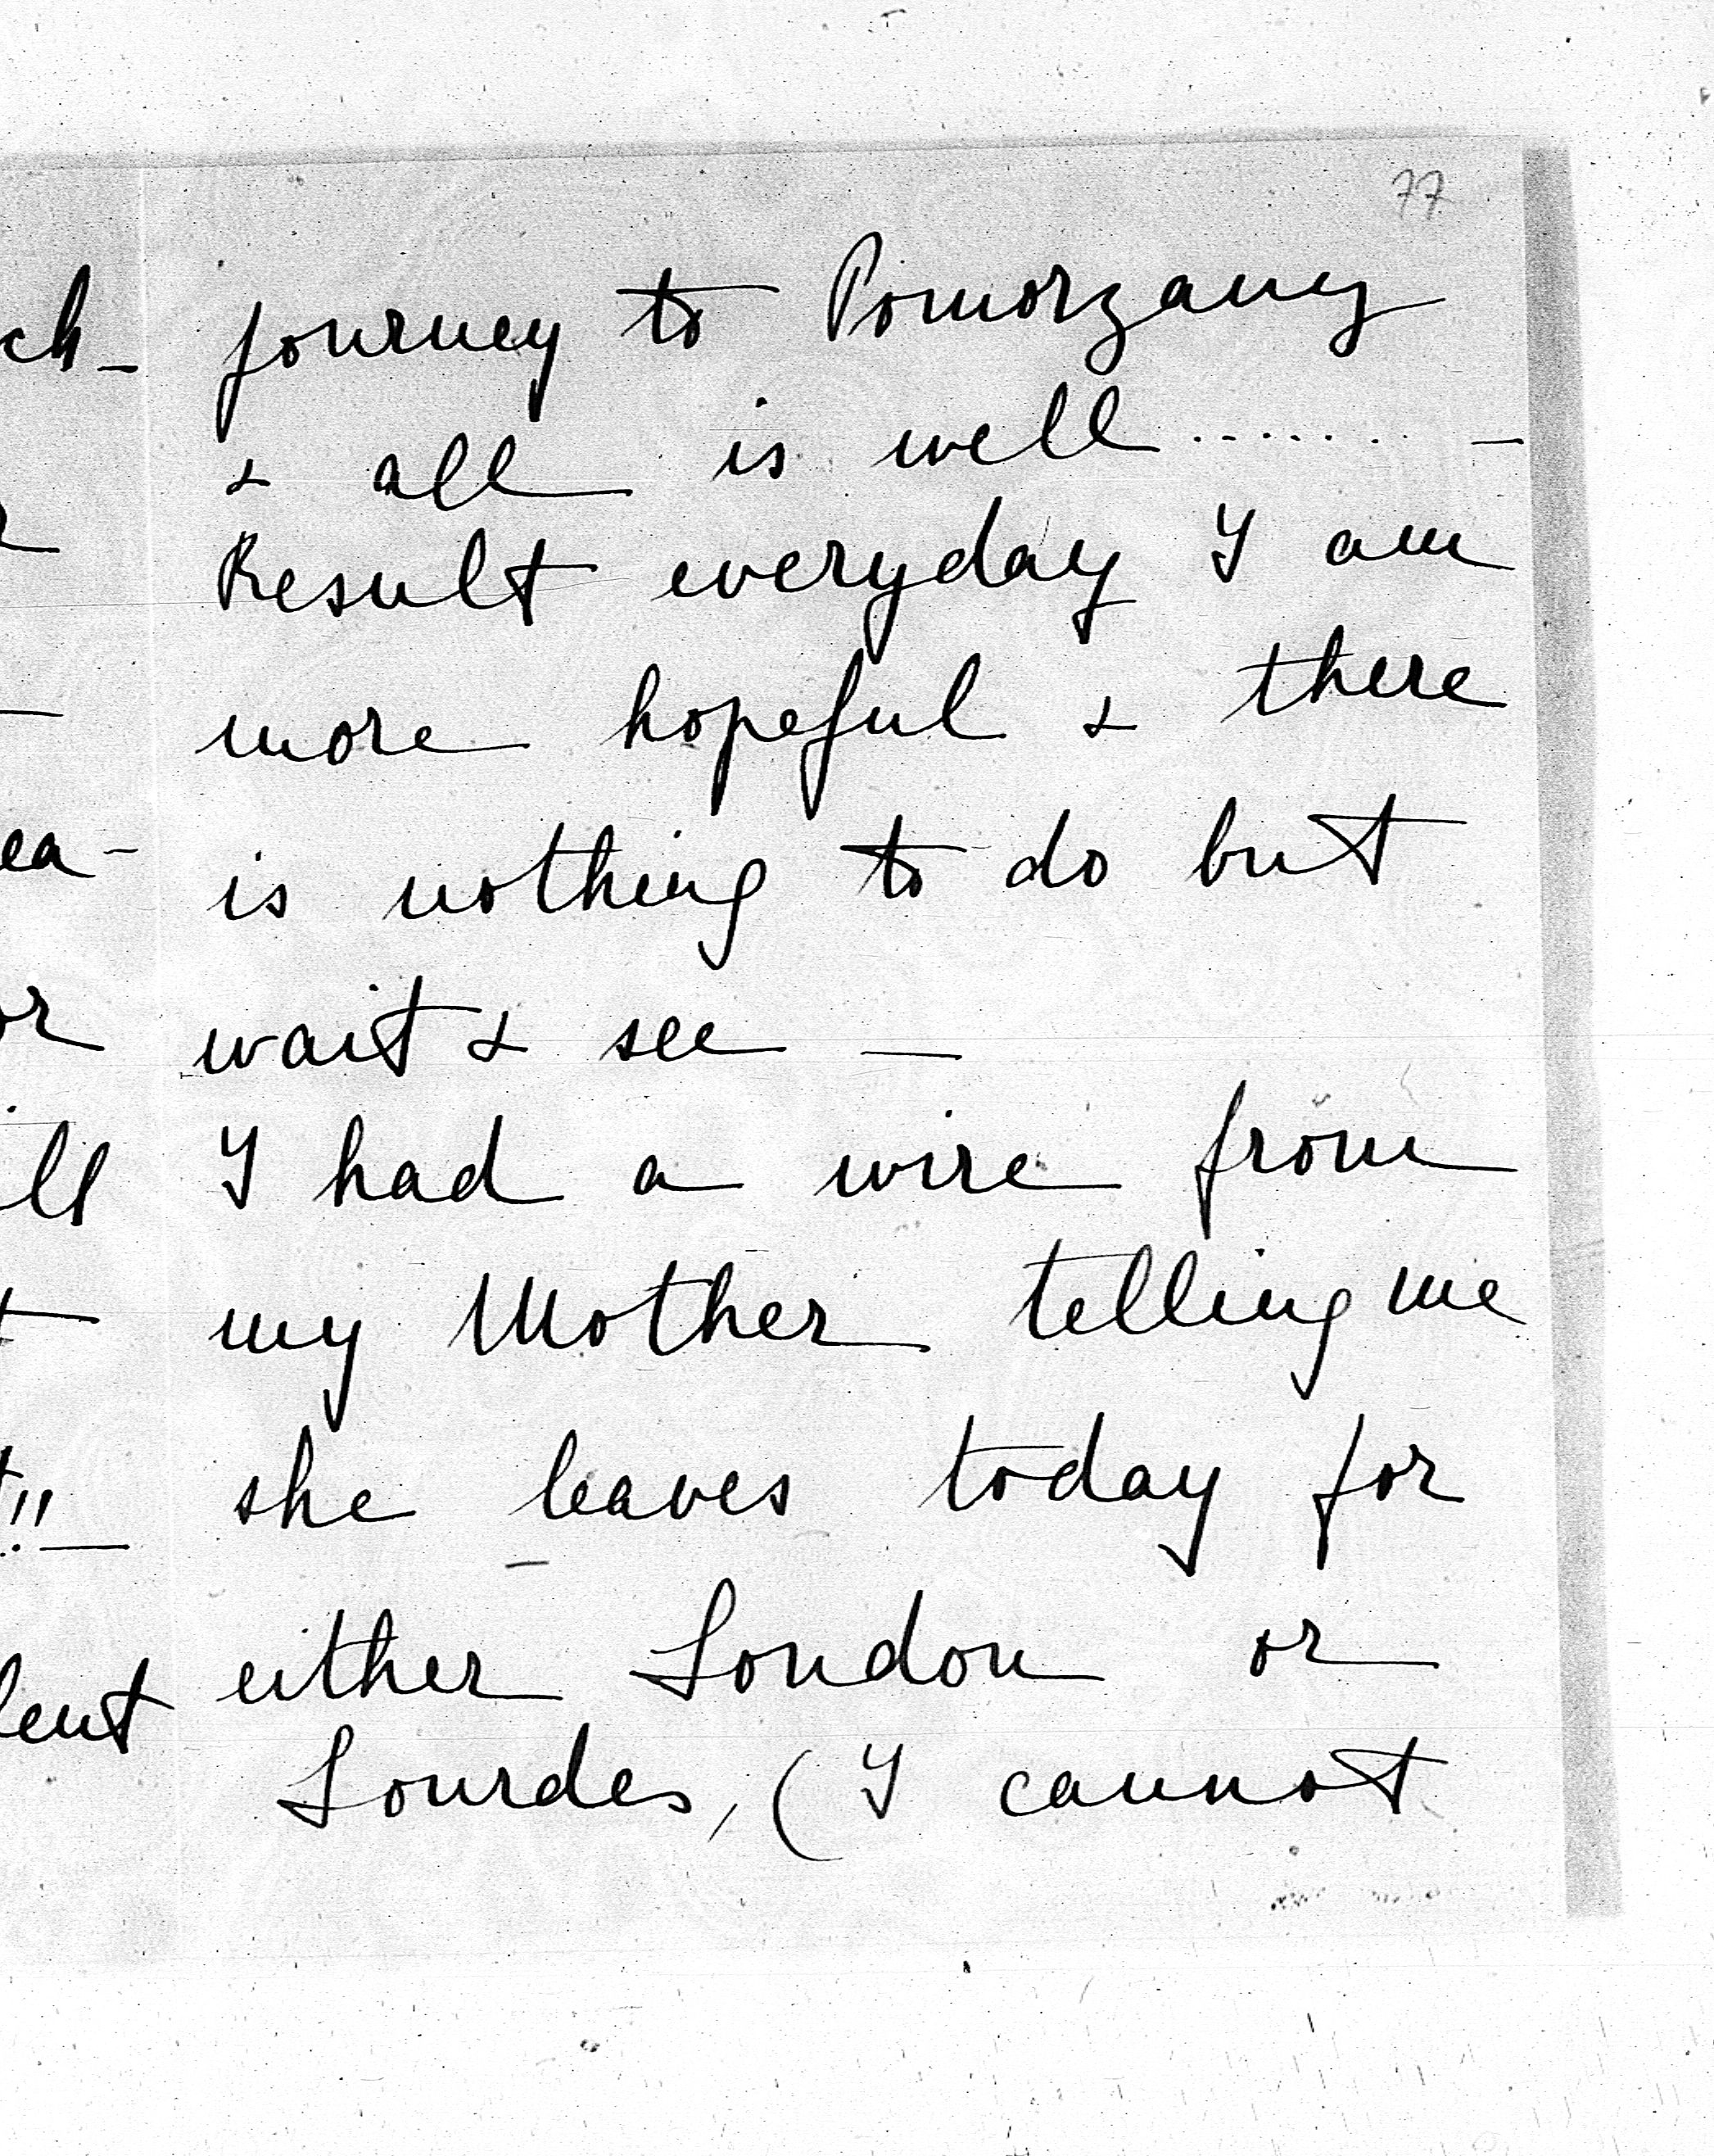 77
journey to Pomorzany
& all is well ........ —
Result everyday I am
more hopeful & there
is nothing to do but
wait & see —
I had a wire from
my Mother telling me
she leaves today for
either London or
Lourdes, (I cannot